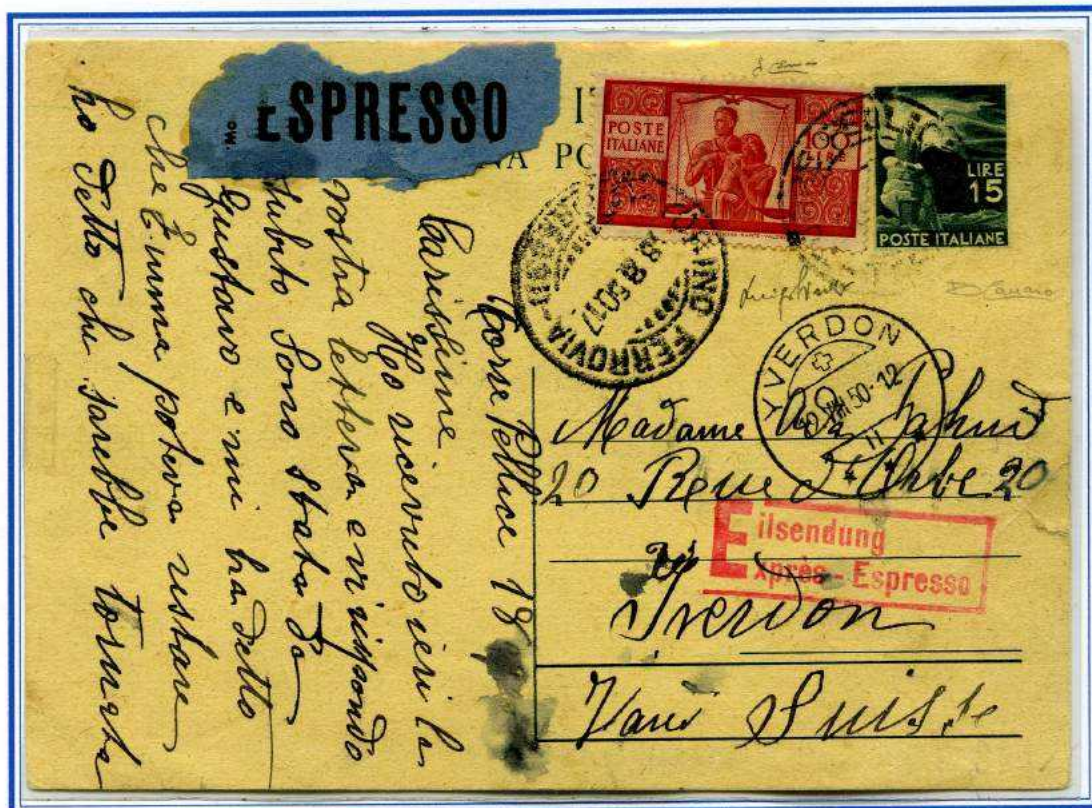 ESPRESSO
POSTE
ITALIANE
100
LIRE
15
POSTE ITALIANE
TORINO FERROVIA
18 8 50 17
YVERDON
VIII 50-12
Madame
20 Rue d'Orbe 20
Yverdon
Vaud Suisse
Eilsendung
Exprès - Espresso
Torre Pellice 18
Carissime
Ho ricevuto ieri la
vostra lettera e vi rispondo
subito Sono stata da
Gustavo e mi ha detto
che Emma poteva restare
ho detto che sarebbe tornata